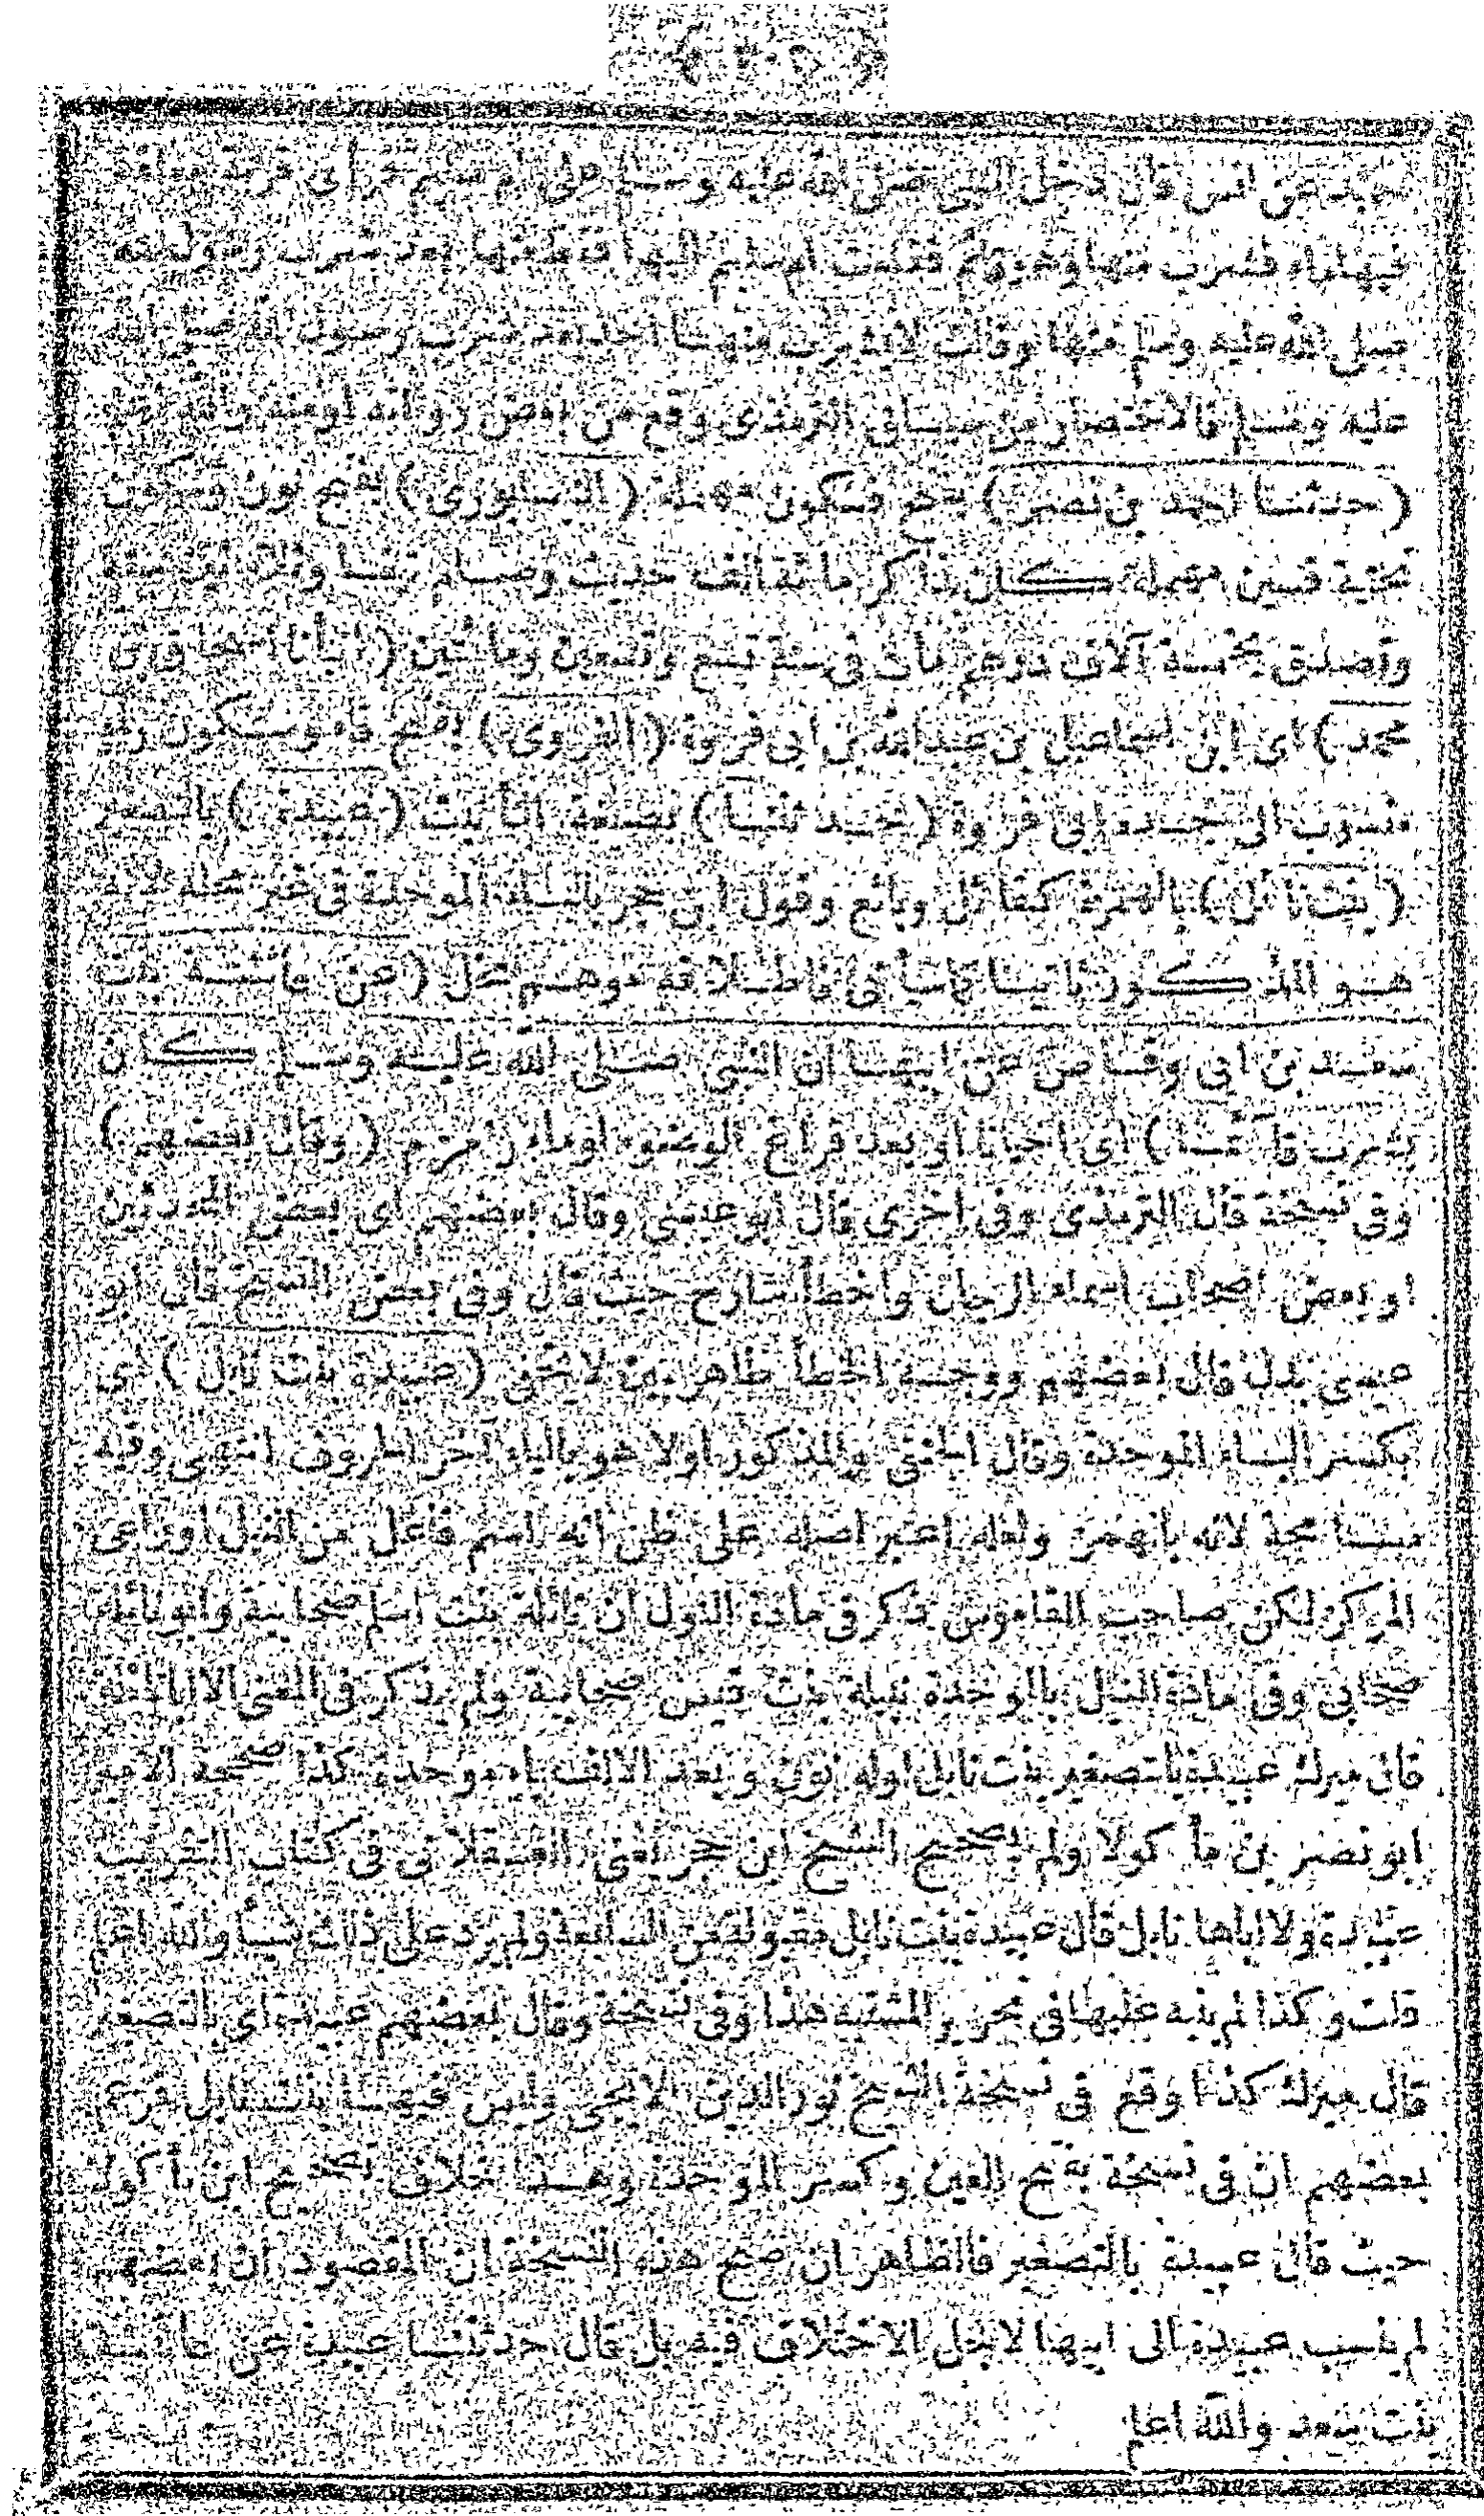 انس قال دخل النبي صلى الله عليه وسلم على ام سليم
فيها ماء فشرب منها وهو قائم فقامت ام سليم اليها فقطعتها بعد شرب رسول الله
صلى الله عليه وسلم منها وقالت لا يشرب منها احد بعد شرب رسول الله صلى الله
عليه وسلم فالاختصار من سياق الترمذى وقع من بعض رواته
(حدثنا احمد بن نصر) بفتح فسكون مهملة (النيسابورى) بفتح نون فسكون
تحتية فسين مهملة كان يذاكر مائة الف حديث وصام
وتصدق بخمسة آلاف درهم مات فى سنة تسع وتسعين ومائتين (انبأنا اسحاق بن
محمد) اى ابن اسماعيل بن عبدالله بن ابى فروة (الفروى) بفتح فاء وسكون راء
منسوب الى جده ابى فروة (حدثتنا) بصيغة التأنيث (عبيدة) بالتصغير
(بنت نائل) بالهمزة كقائل وبائع وقول ابن حجر بالباء الموحدة فى غير محله لانه
هو المذكور ثانيا كما سيأتى فاطلاقه موهم مخل (عن عائشة بنت
سعد بن ابى وقاص عن ابيها ان النبى صلى الله عليه وسلم كان
يشرب قائما) اى احيانا او بعد فراغ الوضوء او ماء زمزم (وقال بعضهم)
وفى نسخة قال الترمذى وفى اخرى قال ابو عيسى وقال بعضهم اى بعض المحدثين
او بعض اصحاب اسماء الرجال واخطأ شارح حيث قال وفى بعض النسخ قال ابو
عيسى بدل قال بعضهم ووجه الخطأ ظاهر لا يخفى (عبيدة بنت نابل) اى
بكسر الباء الموحدة وقال الحنفى والمذكور اولا هو بالياء آخر الحروف انتهى وفيه
مسامحة لانه بالهمز ولعله اعتبر اصله على ظن انه اسم فاعل من النيل او راعى
المركز لكن صاحب القاموس ذكر فى مادة النول ان نائلة بنت اسلم صحابية وابو نائلة
صحابى وفى مادة النبل بالموحدة نبيلة بنت قيس صحابية ولم يذكر فى المغنى الا
قال ميرك عبيدة بالتصغير بنت نابل اوله نون وبعد الالف باء موحدة كذا صححه الامير
ابو نصر بن ماكولا ولم يصحح الشيخ ابن حجر اعنى العسقلانى فى كتاب التقريب
عبيدة ولا اباها نابل قال عبيدة بنت نابل مقبولة من السابعة ولم يزد على ذلك شيأ والله اعلم
قلت وكذا لم ينبه عليها فى تحرير المشتبه هذا وفى نسخة وقال بعضهم عبيدة اى بالتصغير
قال ميرك كذا وقع فى نسخة الشيخ نور الدين الايجى وليس فيها بنت نابل فزعم
بعضهم ان فى نسخة بفتح العين وكسر الموحدة وهذا خلاف تصحيح ابن ماكولا
حيث قال عبيدة بالتصغير فالظاهر ان صح هذه النسخة ان المقصود ان بعضهم
لم ينسب عبيدة الى ابيها لاجل الاختلاف فيه بل قال حدثتنا عبيدة عن عائشة
بنت سعد والله اعلم